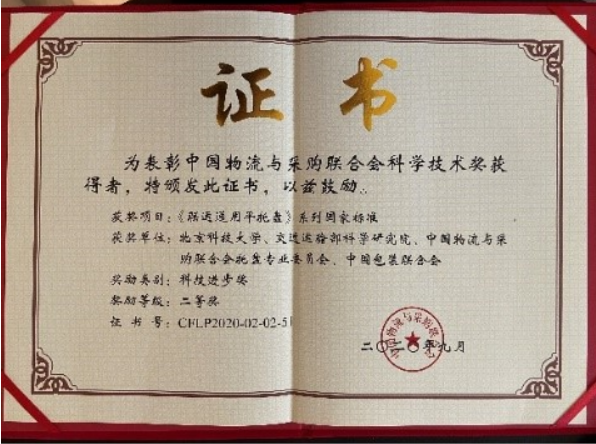 证书
为表彰中国物流与采购联合会科学技术奖获
得者，特颁发此证书，以兹鼓励。
获奖项目：《联运通用平托盘》系列国家标准
获奖单位：北京科技大学、交通运输部科学研究院、中国物流与采
购联合会托盘专业委员会、中国包装联合会
奖励类别：科技进步奖
奖励等级：二等奖
证 书 号：CFLP2020-02-02-51
二〇二〇年九月